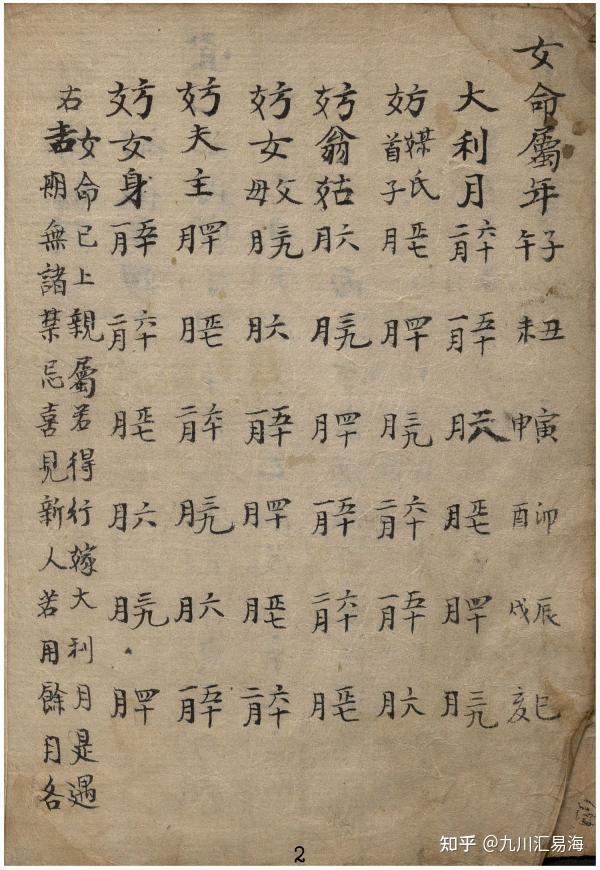 女命屬年 子午 丑未 寅申 卯酉 辰戌 巳亥
大利月 六十二月 五十一月 二八月 正七月 四十月 三九月
妨媒氏首子 正七月 四十月 三九月 六十二月 五十一月 二八月
妨翁姑 二八月 三九月 四十月 五十一月 六十二月 正七月
妨女父母 三九月 二八月 五十一月 四十月 正七月 六十二月
妨夫主 四十月 正七月 六十二月 三九月 二八月 五十一月
妨女身 五十一月 六十二月 正七月 二八月 三九月 四十月
右女命已上親屬若得行嫁大利月是遇
吉期無諸禁忌喜見新人若用餘月各
2
知乎 @九川汇易海